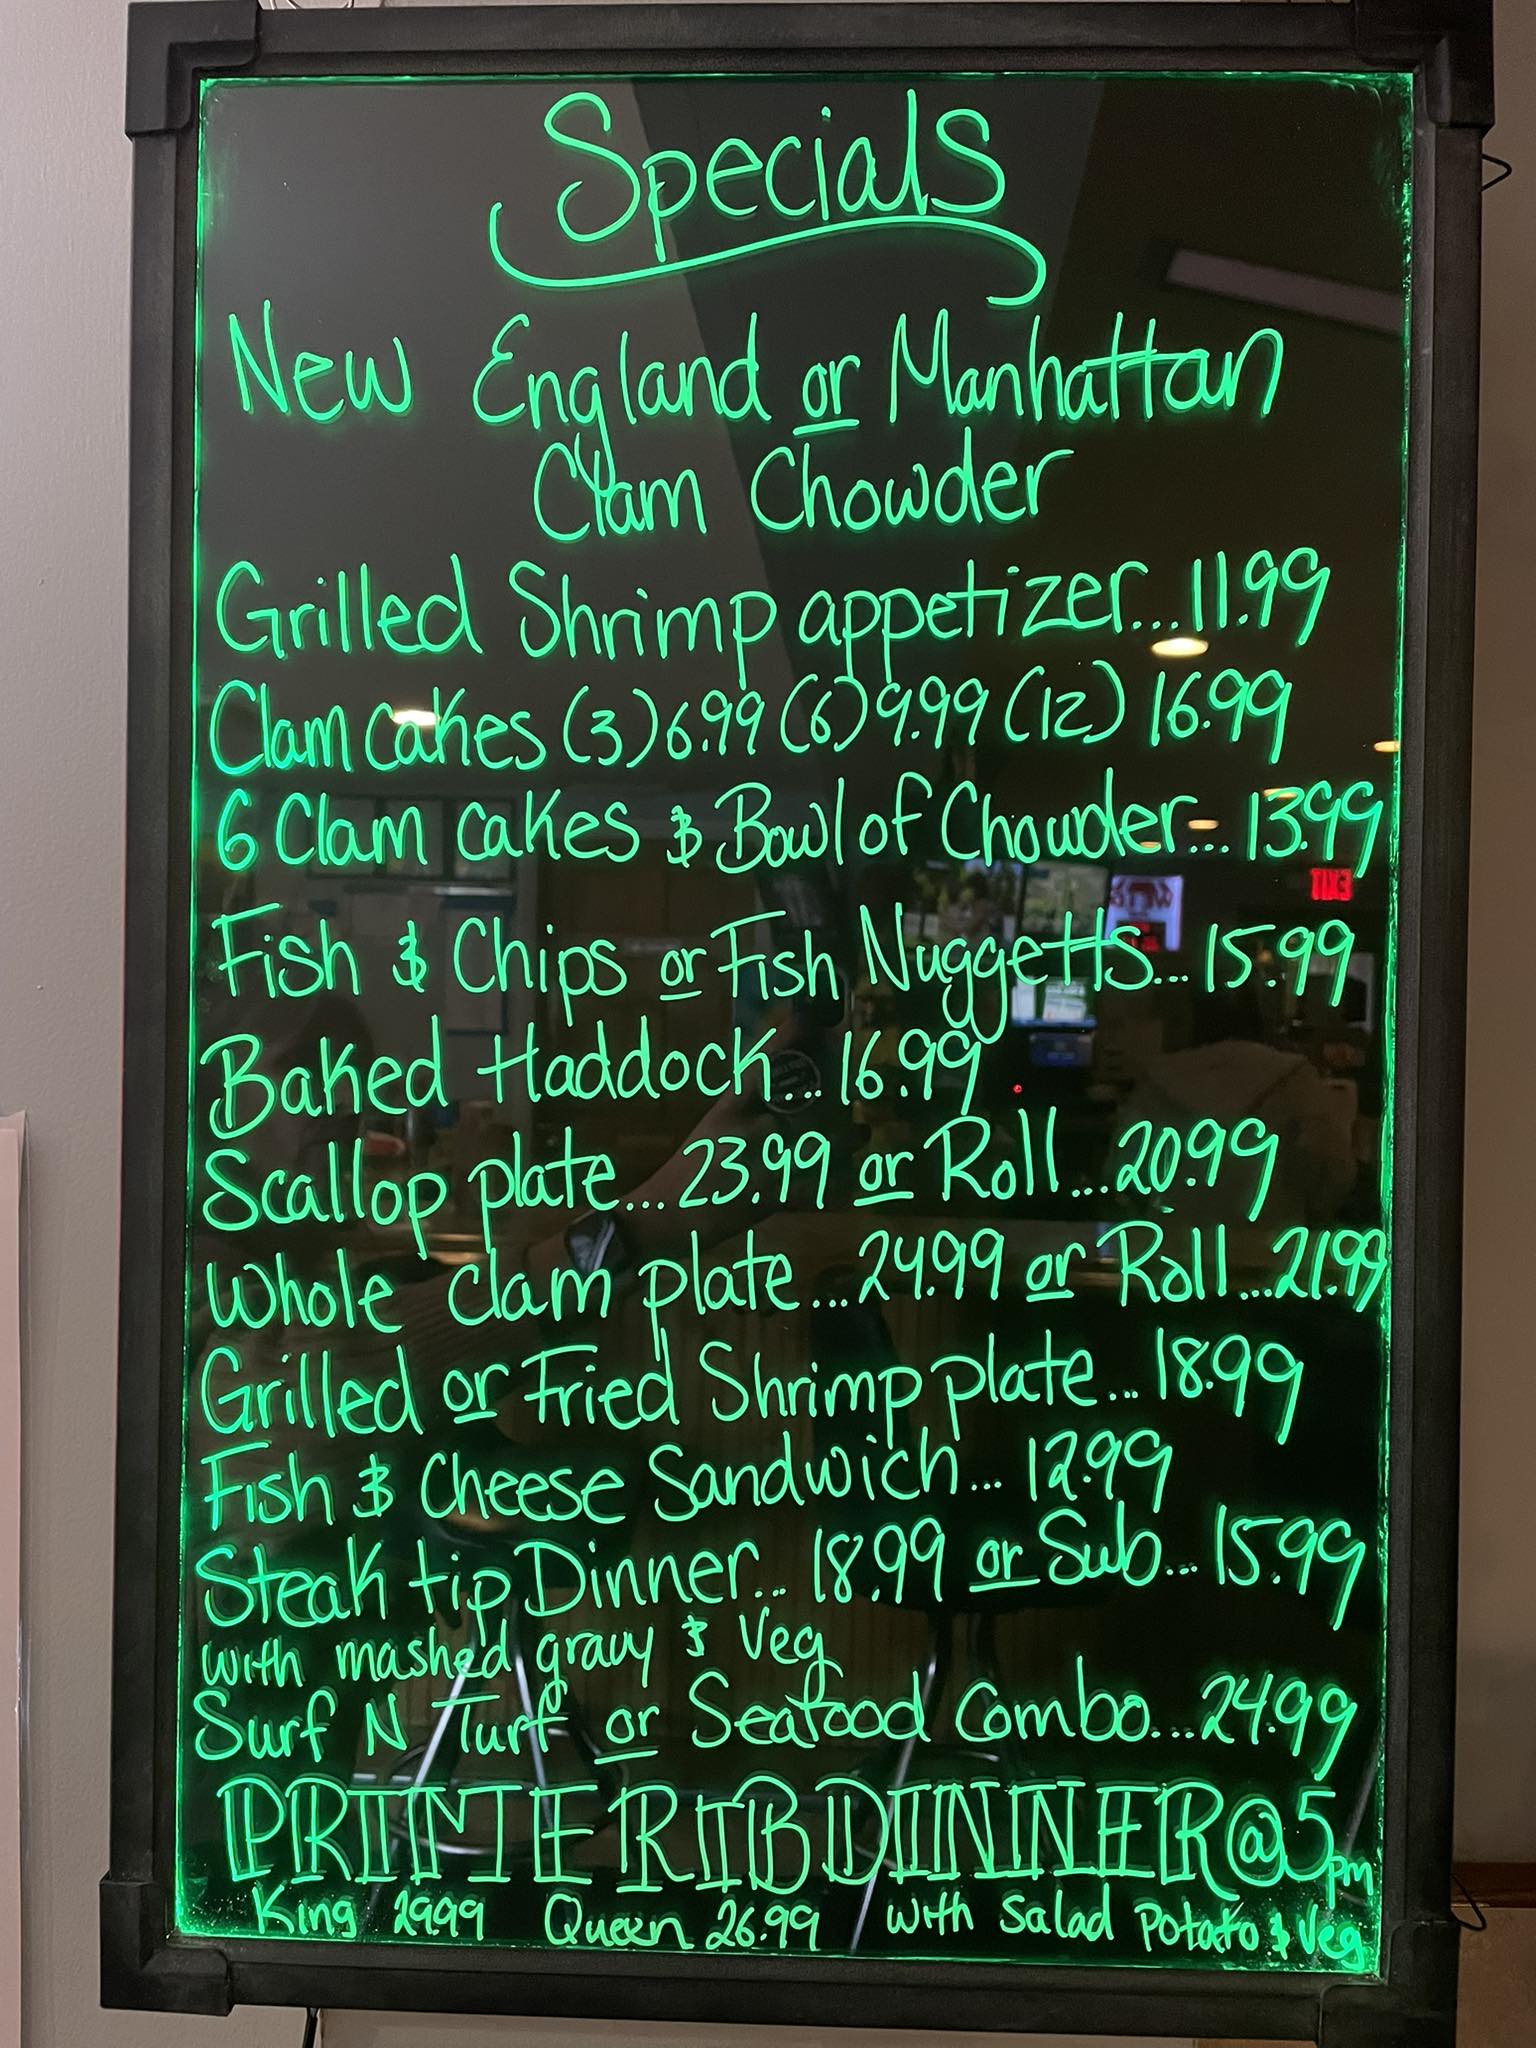 Specials
New England or Manhattan
Clam Chowder
Grilled Shrimp appetizer...11.99
Clam cakes (3) 6.99 (6) 9.99 (12) 16.99
6 Clam cakes & Bowl of Chowder... 13.99
Fish & Chips or Fish Nuggetts... 15.99
Baked Haddock... 16.99
Scallop plate... 23.99 or Roll... 20.99
Whole clam plate... 24.99 or Roll... 21.99
Grilled or Fried Shrimp plate... 18.99
Fish & Cheese Sandwich... 12.99
Steak tip Dinner... 18.99 or Sub... 15.99
with mashed gravy & Veg
Surf N Turf or Seafood Combo... 24.99
PRIME RIB DINNER @ 5pm
King 29.99 Queen 26.99 with Salad Potato & Veg
EXIT